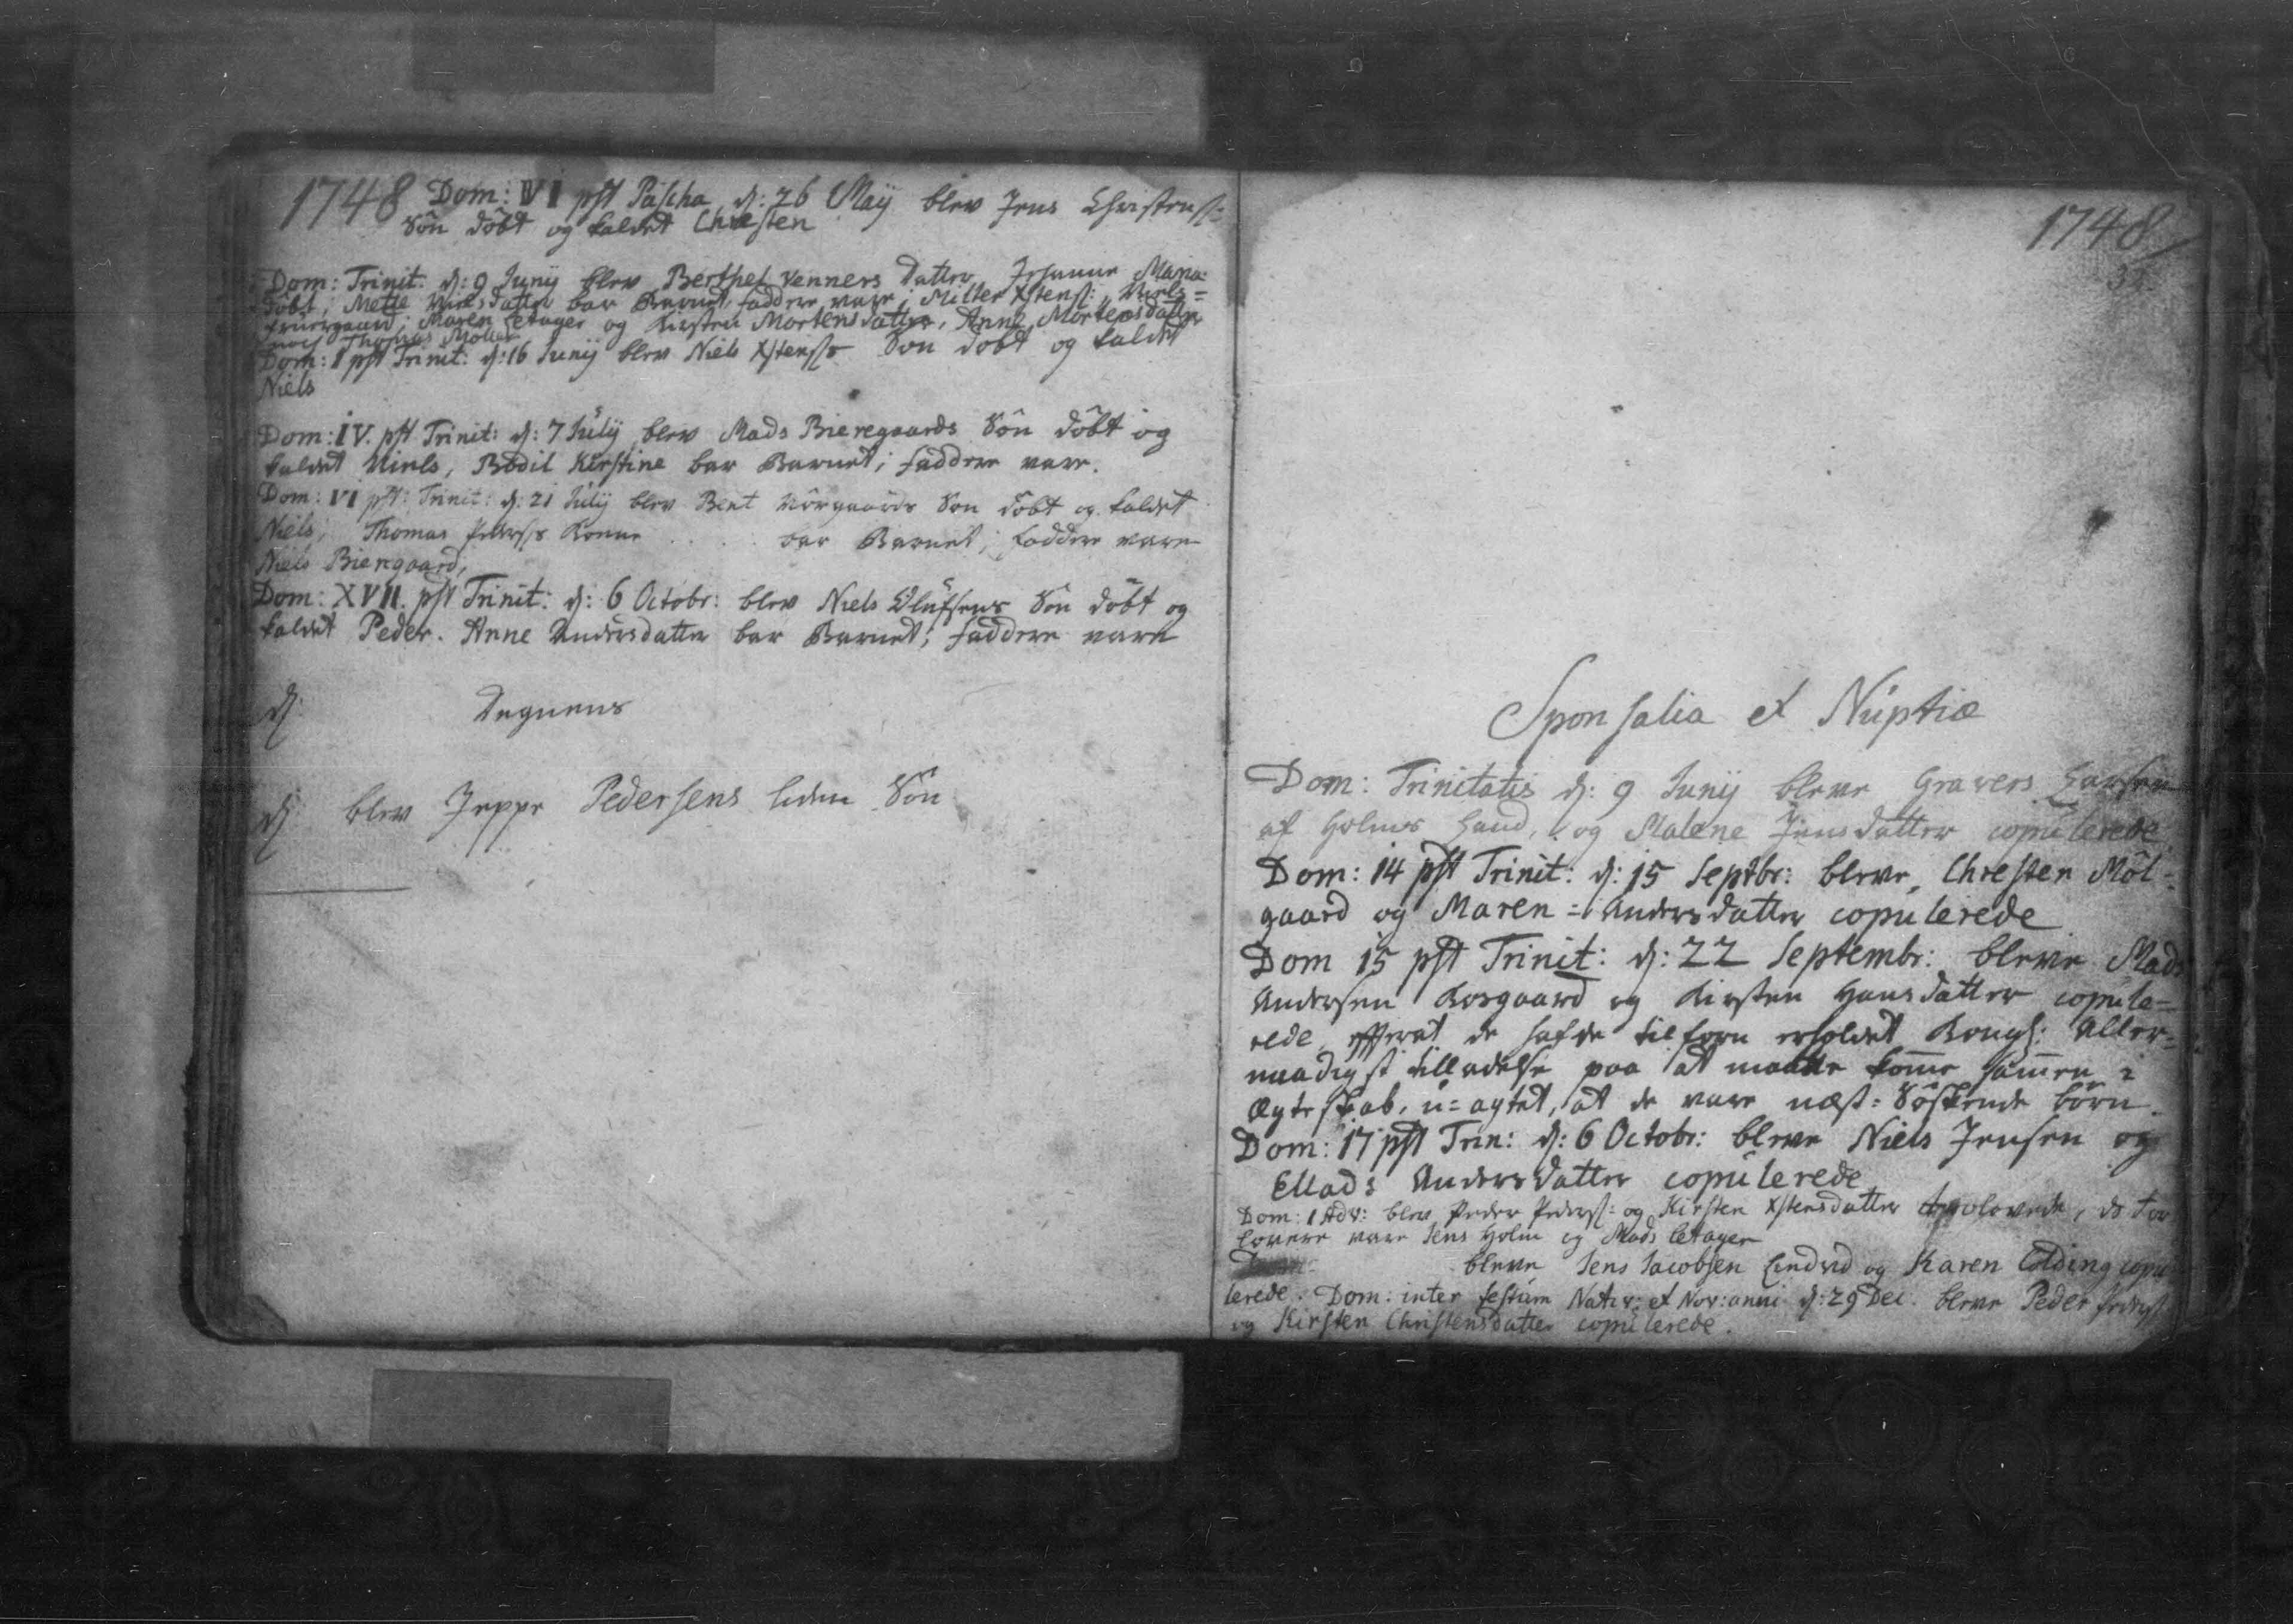 1748 Dom: VI pst Pascha d: 26 Maij blev Jens Christenss:
Sön döbt og kaldet Chresten
Dom: Trinit: d: 9 Junij blev Berthel Venners Datter Johanne Maria
döbt; Mette Nielsdatter bar Barnet, faddere vare; Milter Xstens: Niels=
Maren letager og Kirsten Mortensdatter, Anne Mortensdatter
Thomas Möller
Dom: 1 pst Trinit: d: 16 Junij blev Niels Xstenss Son döbt og kaldet
Niels
Dom: IV. pst Trinit: d: 7 Julij blev Mads Bieregaards Sön döbt og
kaldet Niels, Bodil Kirstine bar Barnet; faddere vare.
Dom: VI pst: Trinit: d: 21 Julij blev Bent Nörgaards Son döbt og kaldet
Niels; Thomas Pederss Konne . . . . bar Barnet; faddere vare
Niels Biergaard,
Dom: XVII. pst Trinit: d: 6 Octobr: blev Niels Olufsens Sön döbt og
kaldet Peder. Anne Andersdatter bar Barnet; faddere vare
d: Degnens
d: blev Jeppe Pedersens liden Sön
1748
Sponsalia et Nuptiæ
Dom: Trinitatis d: 9 Junij bleve Gravers Hansen
af Holmsland, og Malene Jensdatter copulerede
Dom: 14 pst Trinit: d: 15 Septbr: bleve, Chresten Möl=
gaard og Maren = Andersdatter copulerede
Dom 15 pst Trinit: d: 22 Septembr: bleve Mads
Andersen Kosgaard og Kirsten Hansdatter copule=
rede, efterat de hafde tilforn erholdet Kongl: Aller=
naadigst tilladelse paa at maatte komme sammen i
Ægteskab, u=agtet, at de vare næst=Söskende börn.
Dom: 17 pst Trin: d: 6 Octobr: bleve Niels Jensen og
Ellads Andersdatter copulerede
Dom: 1 Adv: blev Peder Pederss: og Kirsten Xstensdatter trolovede, de for
lovere vare Jens Holm og Mads letager
bleve Jens Jacobsen Lindvid og Karen Colding copu
lerede. Dom: inter festum Nativ: et Nov: anni d: 29 Dec. bleve Peder Pederss
og Kirsten Christensdatter copulerede.